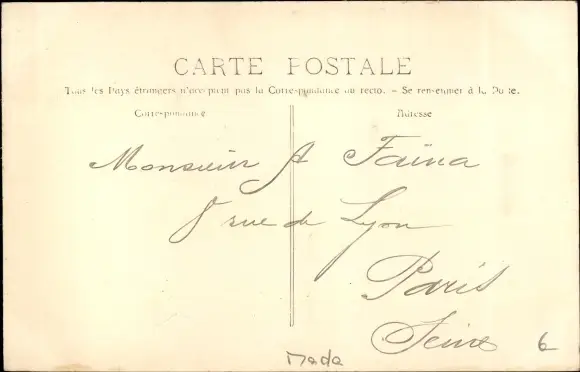 CARTE POSTALE
Tous les Pays étrangers n'acceptent pas la Correspondance au recto. - Se renseigner à la Poste.
Correspondance
Adresse
Monsieur A Faina
8 rue de Lyon
Paris
Seine
6
Mada